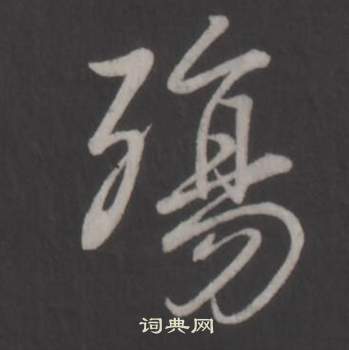 殤
词典网